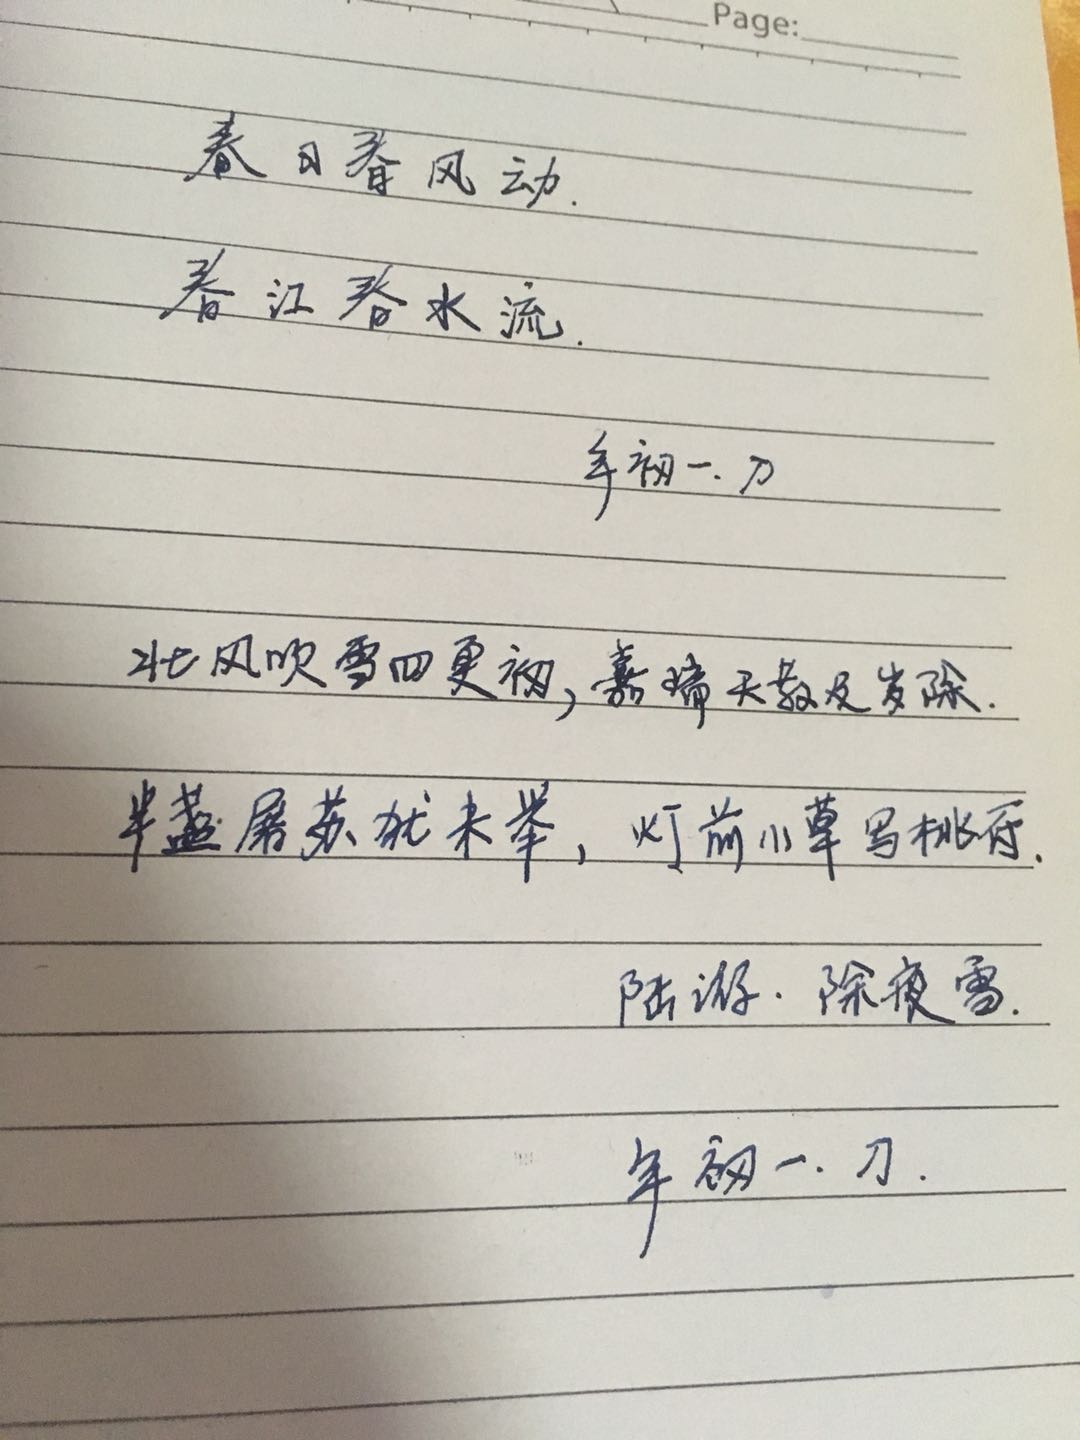 Page:
春日春风动.
春江春水流.
年初一.刀
北风吹雪四更初,嘉瑞天教及岁除.
半盏屠苏犹未举,灯前小草写桃符.
陆游.除夜雪.
年初一.刀.